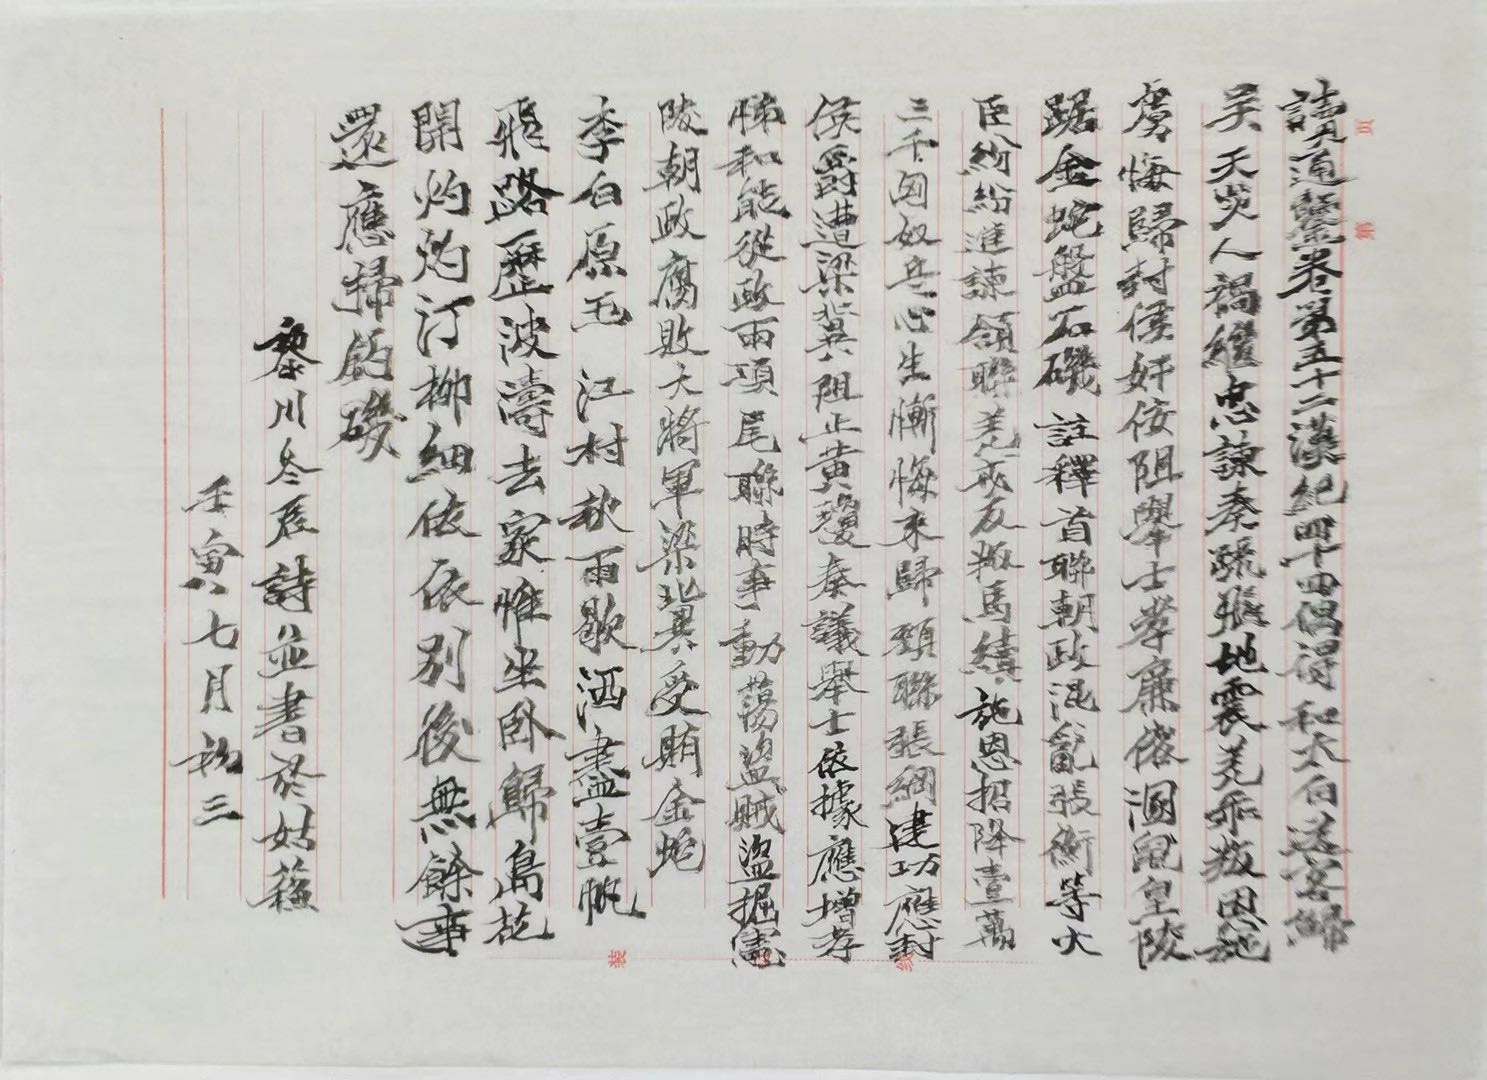 讀通鑒卷第五十二漢紀四十四偶得和太白送客歸
吴 天災人禍繼忠諫奏疏張地震羌乖叛恩施
虜悔歸封侯奸佞阻舉士孝廉催溷鼠皇陵
踞金蛇盤石磯 註釋首聯朝政混亂張衡等大
臣紛紛進諫領聯羌戎反叛馬續施恩招降壹萬
三千匈奴兵心生慚悔來歸頸聯張綱建功應封
侯爵遭梁冀阻止黄瓊奏議舉士依據應增孝
悌和能從政兩項尾聯時事動蕩盗賊盗掘憲
陵朝政腐敗大將軍梁冀受賄金蛇
李白原玉 江村秋雨歇酒盡壹帆
飛路歷波濤去家惟坐卧歸島花
開灼灼汀柳細依依别後無餘事
還應掃釣磯
黎川冬辰詩並書於姑蘇
壬寅七月初三
頁
第
裝
綫